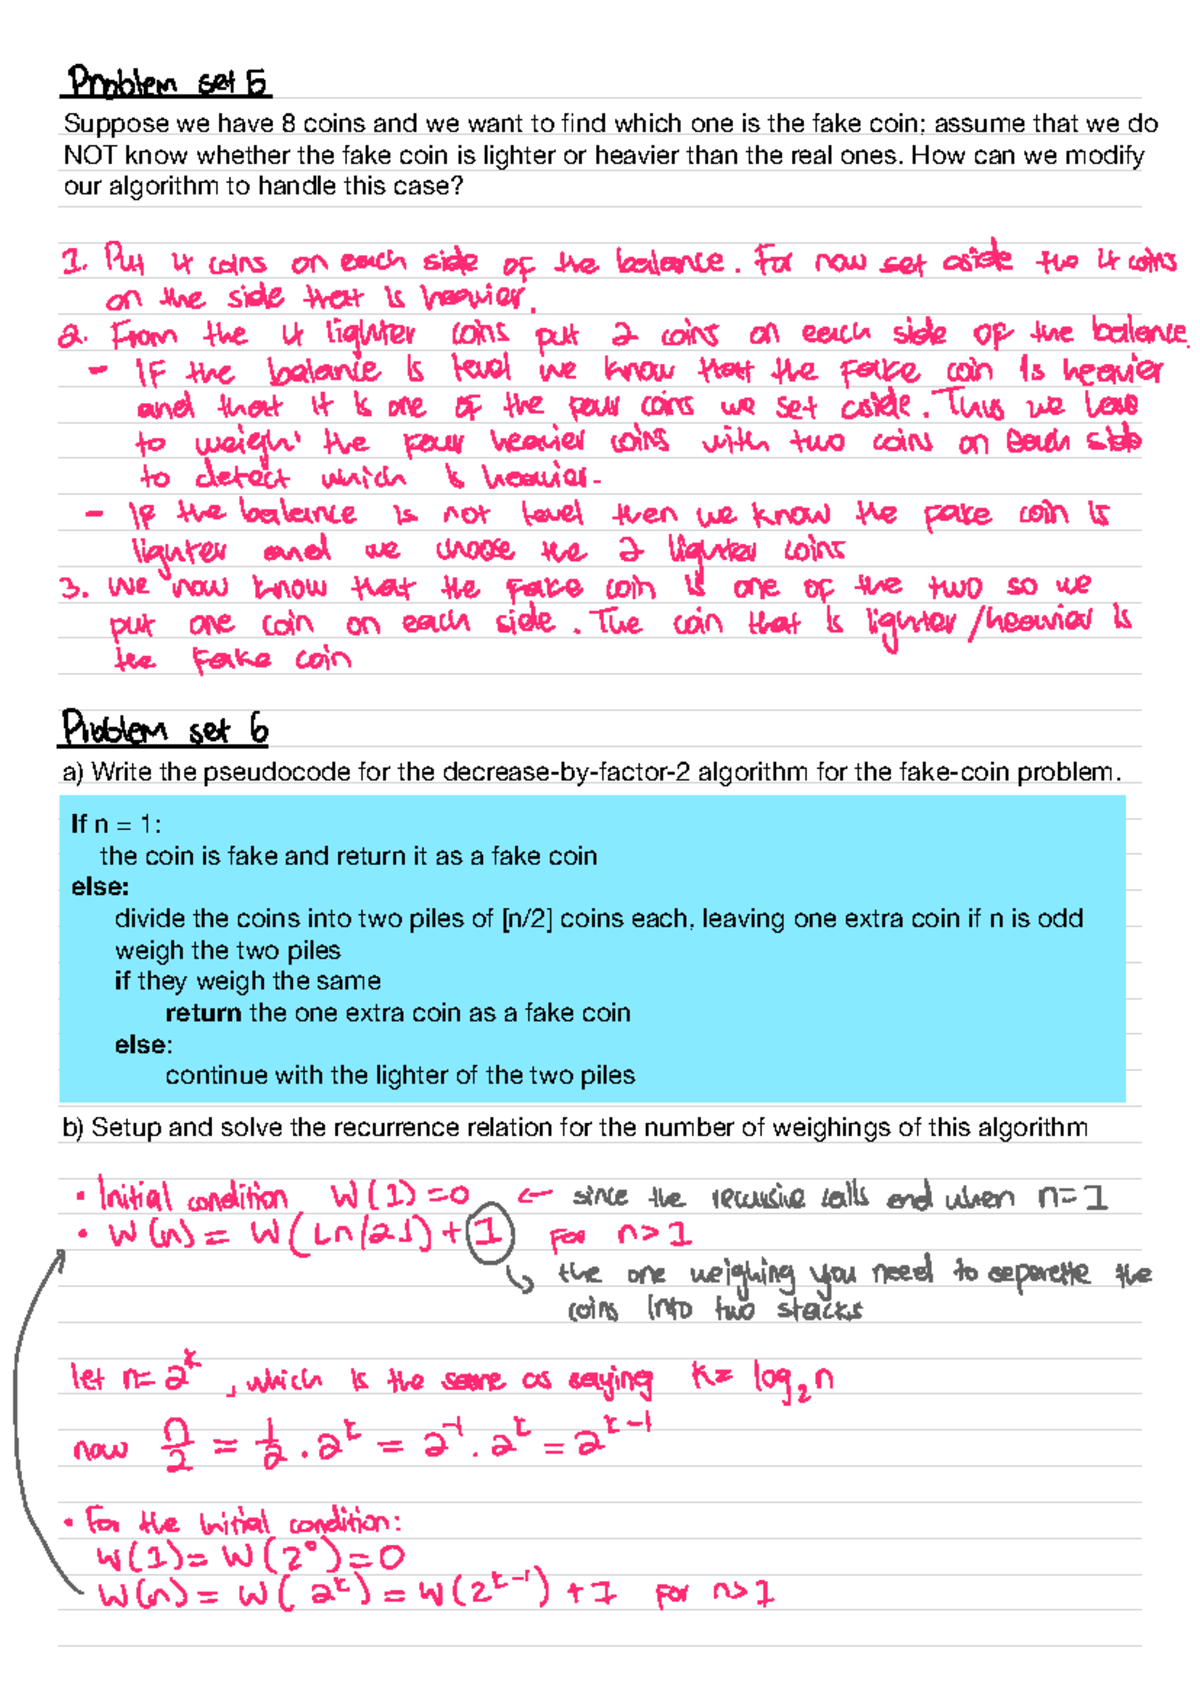 Problem set 5
Suppose we have 8 coins and we want to find which one is the fake coin; assume that we do
NOT know whether the fake coin is lighter or heavier than the real ones. How can we modify
our algorithm to handle this case?
1. Put 4 coins on each side of the balance. For now set aside the 4 coins
on the side that is heavier.
2. From the 4 lighter coins put 2 coins on each side of the balance.
- If the balance is level we know that the fake coin is heavier
and that it is one of the four coins we set aside. Thus we have
to weigh the four heavier coins with two coins on each side
to detect which is heavier.
- If the balance is not level then we know the fake coin is
lighter and we choose the 2 lighter coins
3. We now know that the fake coin is one of the two so we
put one coin on each side. The coin that is lighter/heavier is
the fake coin
Problem set 6
a) Write the pseudocode for the decrease-by-factor-2 algorithm for the fake-coin problem.
If n = 1:
the coin is fake and return it as a fake coin
else:
divide the coins into two piles of [n/2] coins each, leaving one extra coin if n is odd
weigh the two piles
if they weigh the same
return the one extra coin as a fake coin
else:
continue with the lighter of the two piles
b) Setup and solve the recurrence relation for the number of weighings of this algorithm
• Initial condition W(1)=0 ← since the recursive calls end when n=1
• W(n) = W(⌊n/2⌋) + 1 for n>1
the one weighing you need to separate the
coins into two stacks
let n=2^k, which is the same as saying k= log₂n
now n/2 = 1/2 · 2^k = 2^-1 · 2^k = 2^k-1
• For the initial condition:
W(1)= W(2^0)=0
W(n)= W(2^k) = W(2^k-1) +1 for n>1